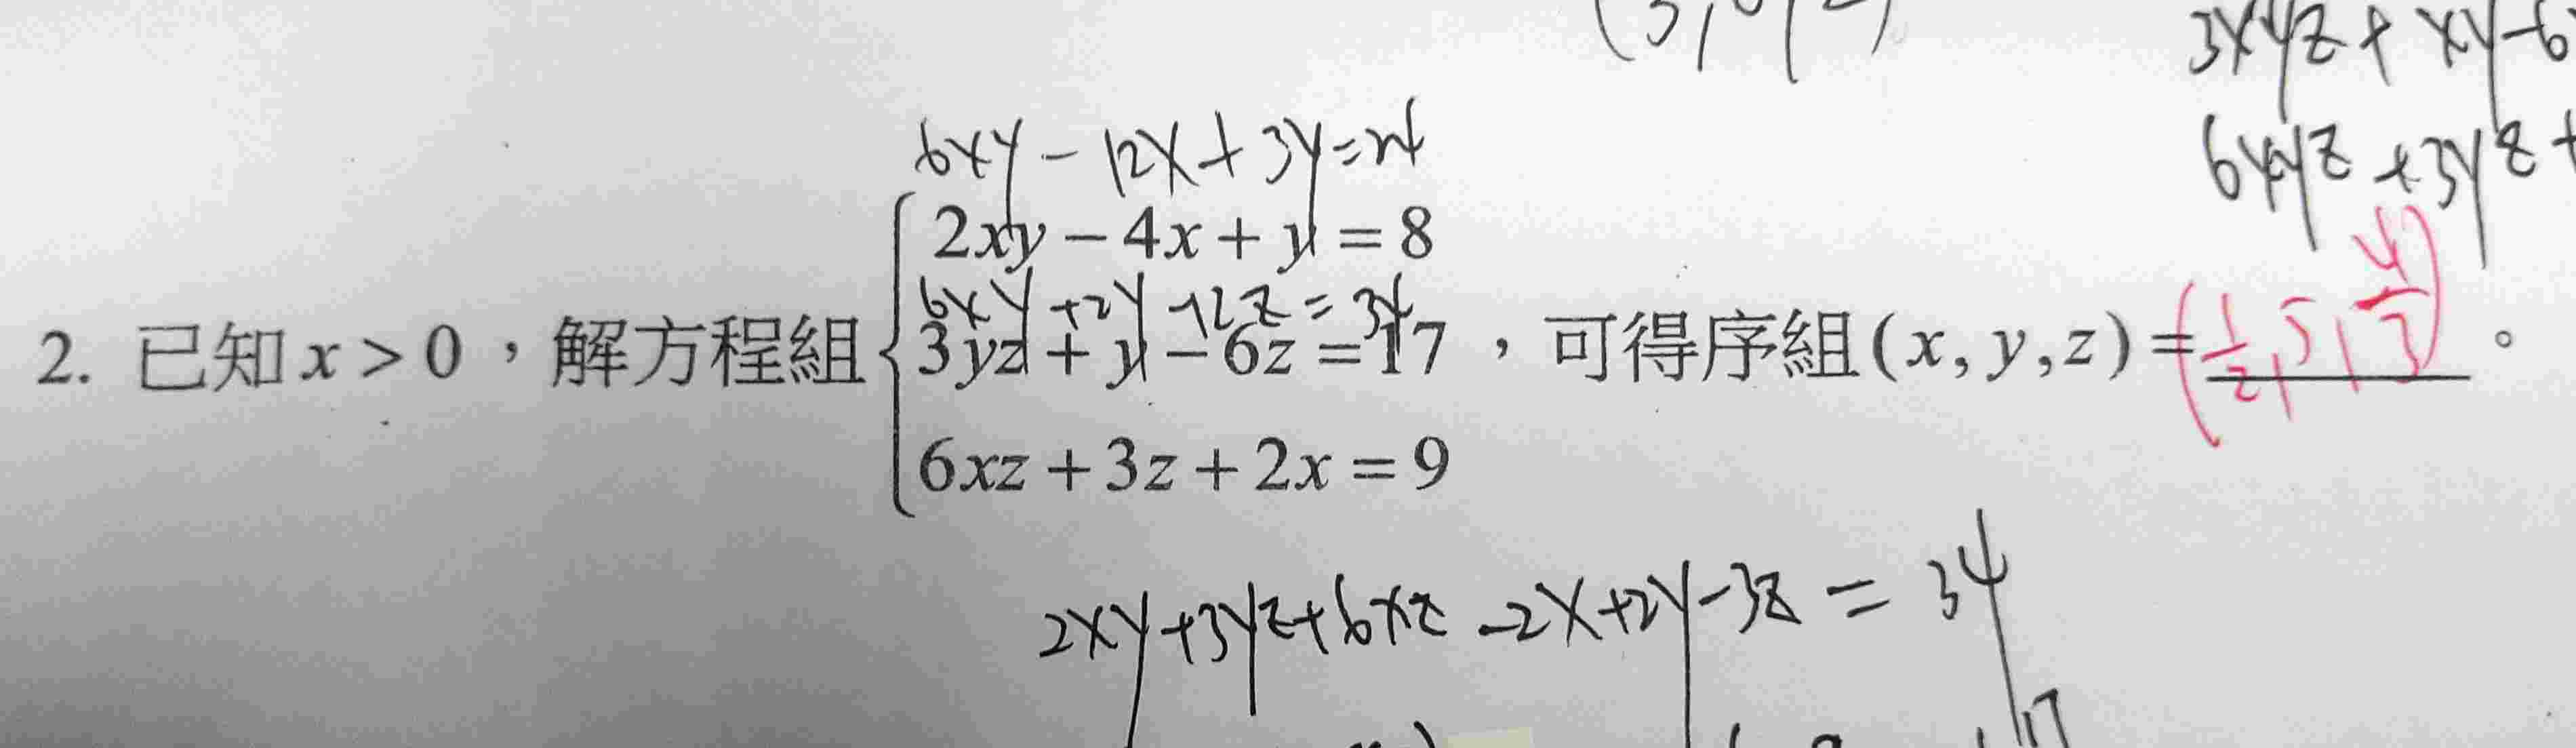 3xyz + xy - 6
6xyz + 3yz +
6xy - 12x + 3y = 24
2xy − 4x + y = 8
6xy + 2y - 12z = 34
2. 已知 x > 0，解方程組 3yz + y − 6z = 17，可得序組(x, y, z) = (1/2, 5, 4/3)。
6xz + 3z + 2x = 9
2xy + 3yz + 6xz - 2x + 2y - 3z = 34
17